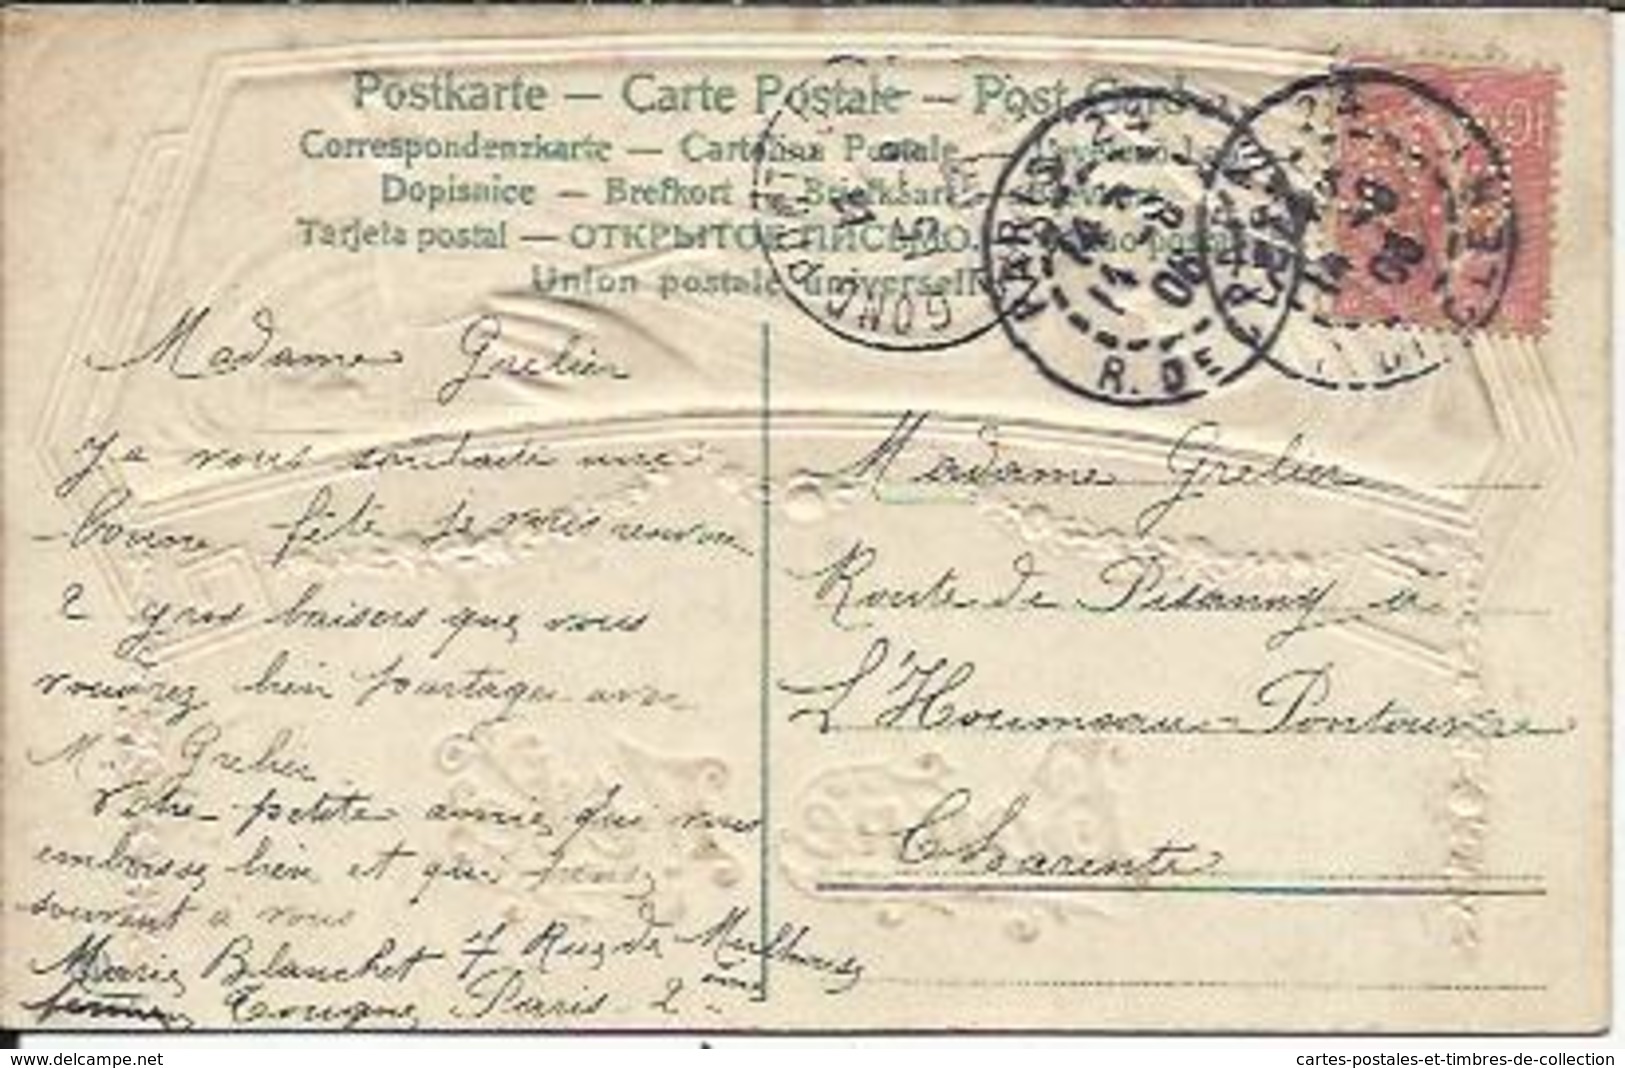 Postkarte — Carte Postale — Post Card
Correspondenzkarte — Cartolina Postale —
Dopisnice — Brefkort — Briefkaart —
Tarjeta postal — ОТКРЫТОЕ ПИСЬМО.
Union postale universelle
PARIS
R. DE
14
8
06
Madame Grelier
Je vous souhaite une
bonne fête je vous renvoie
2 gros baisers que vous
voudrez bien partager avec
M. Grelier
Votre petite amie qui vous
embrasse bien et qui pense
souvent à vous
Marie Blanchet 7 Rue de Mulhouse
femme Tougne Paris 2 ème
Madame Grelier
Route de Pisanny à
L'Houmeau-Pontouvre
Charente
www.delcampe.net
cartes-postales-et-timbres-de-collection